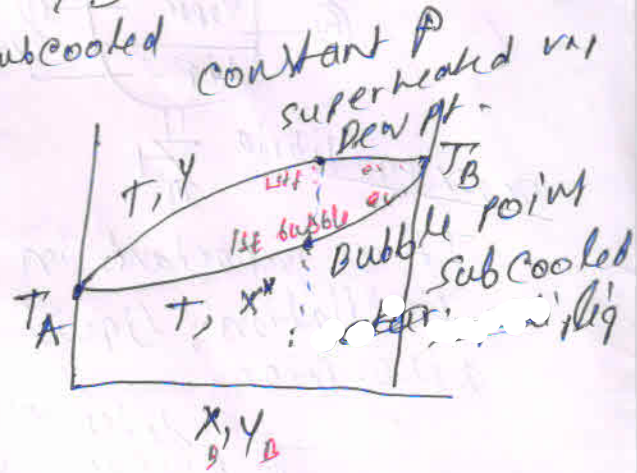 subcooled
constant P
superheated
Dew pt.
T, y
T_B
1st bubble
Bubble point
subcooled
liq
T_A
T, x
x_B, y_B